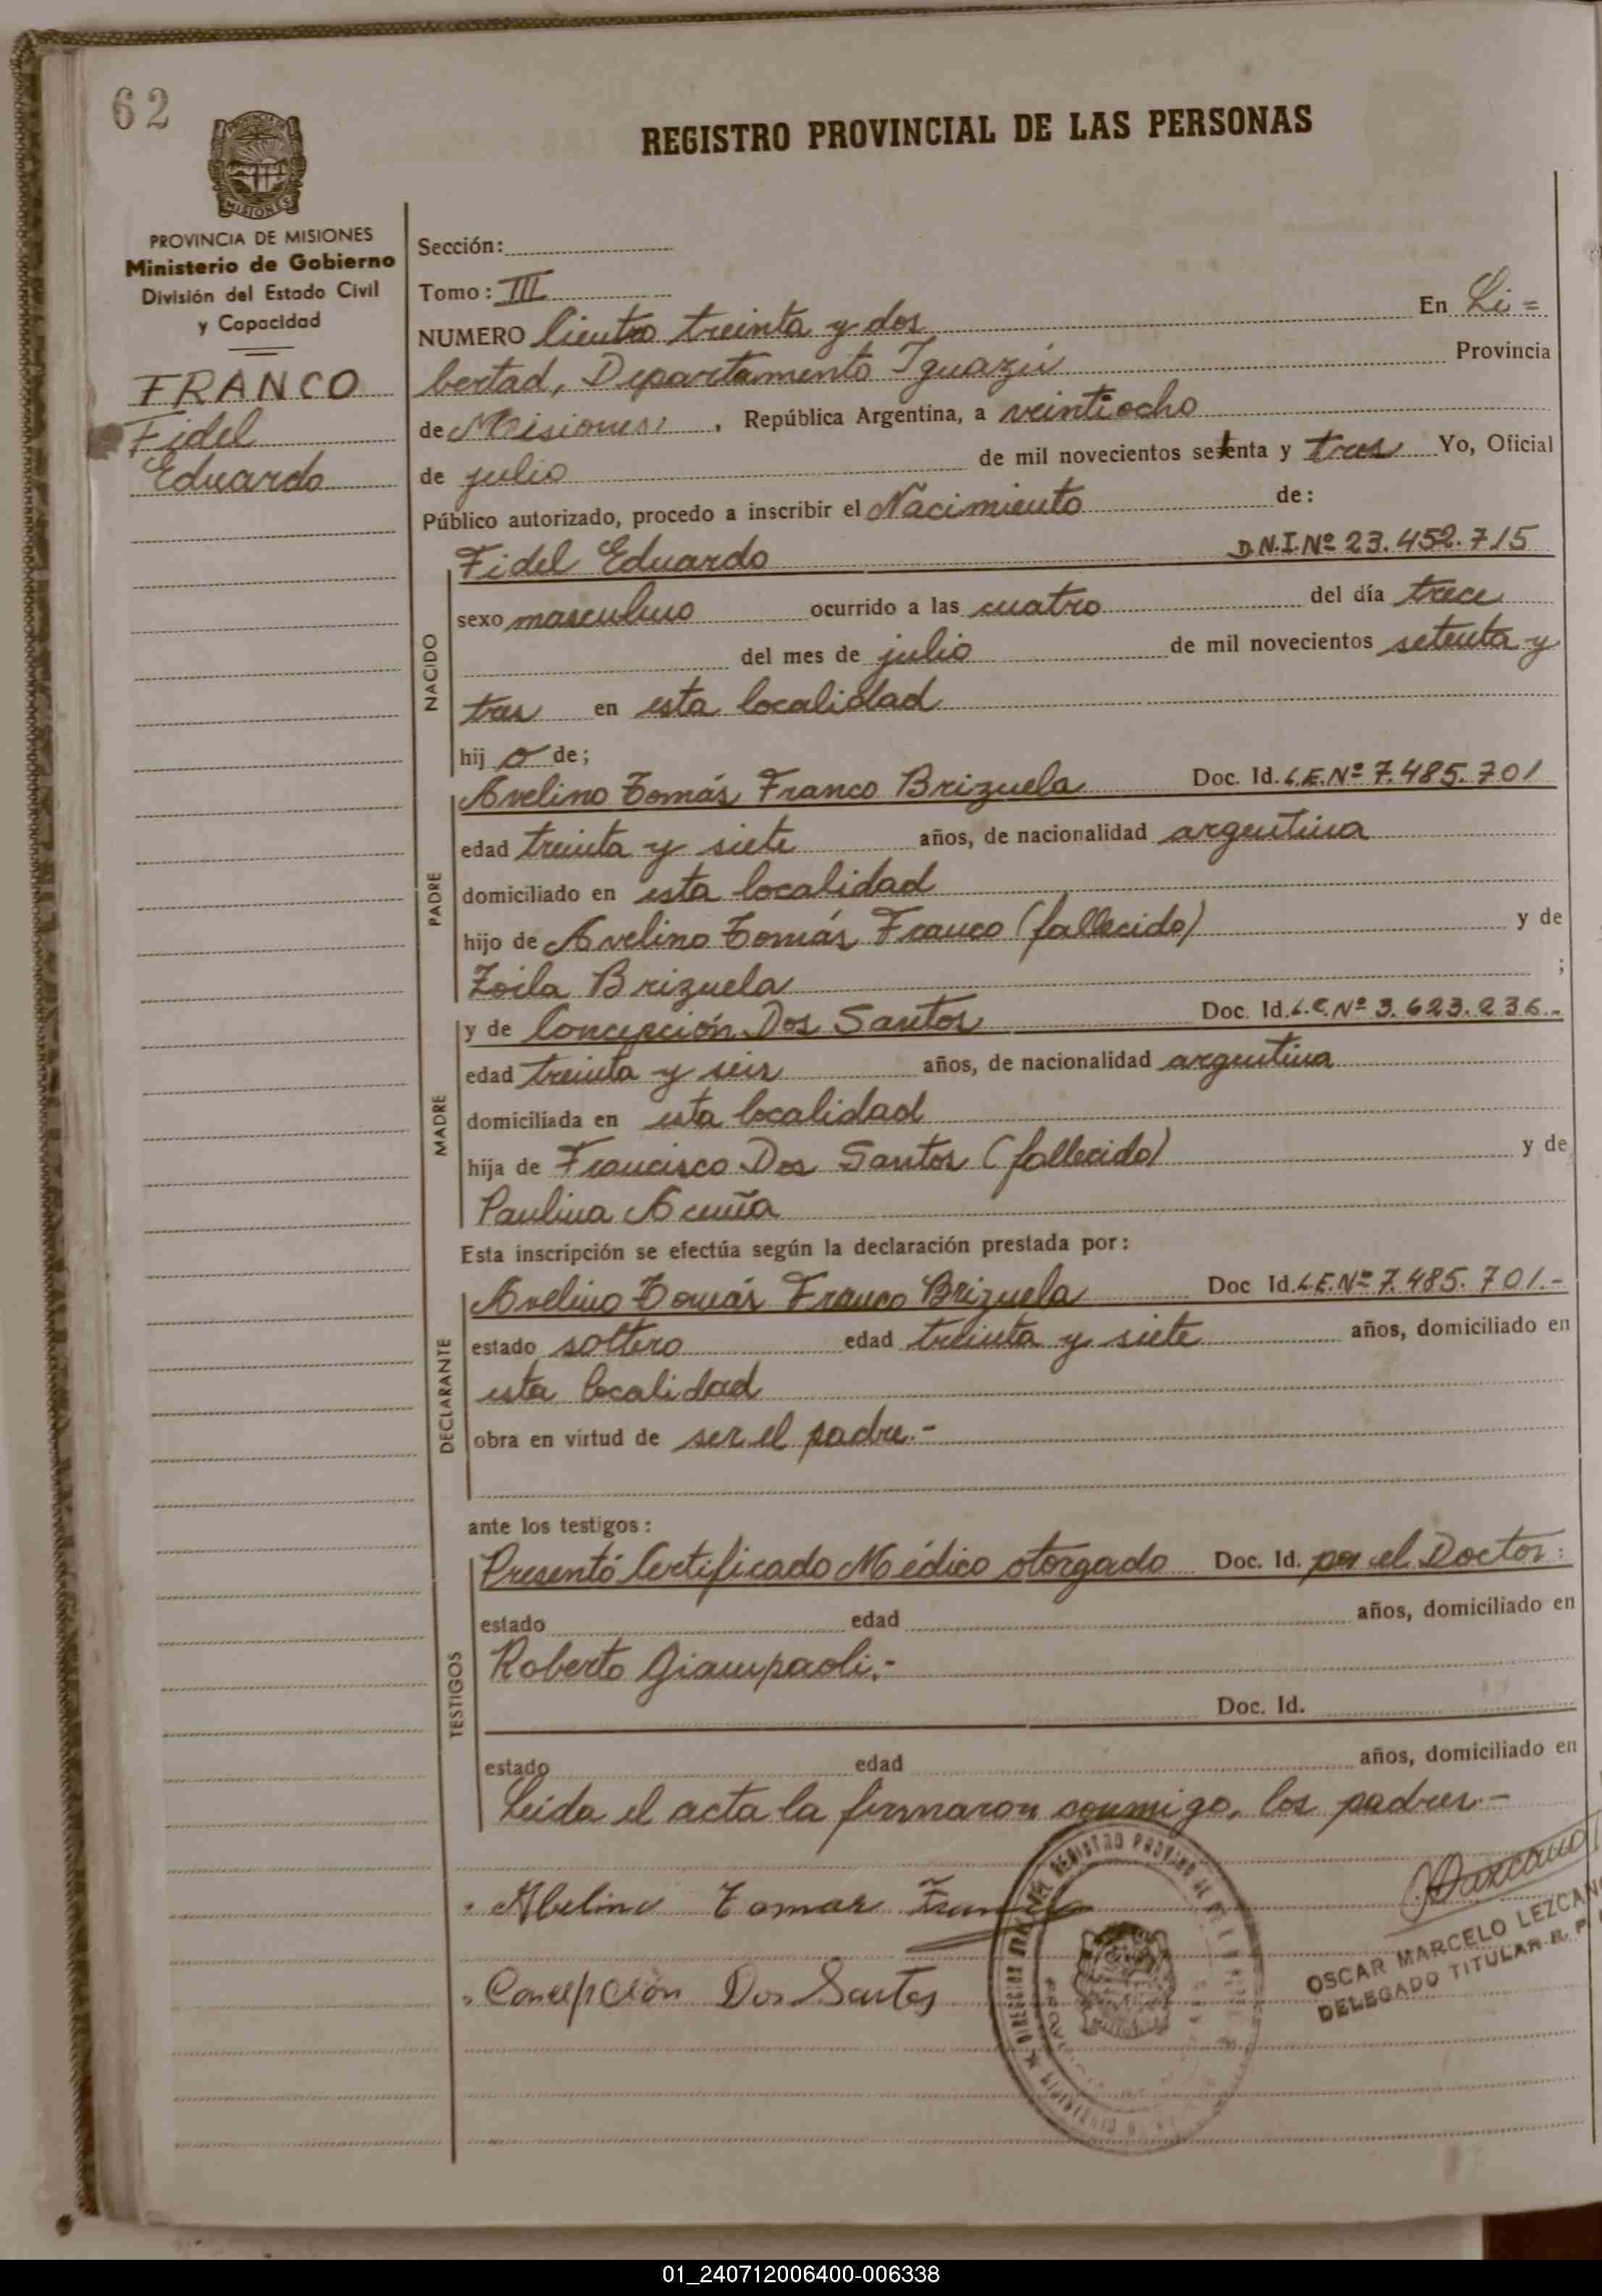 62
REGISTRO PROVINCIAL DE LAS PERSONAS
PROVINCIA DE MISIONES
MISIONES
PROVINCIA DE MISIONES
Ministerio de Gobierno
División del Estado Civil
y Capacidad
FRANCO
Fidel
Eduardo
Sección:
Tomo: III
NUMERO Ciento treinta y dos En Li=
bertad, Departamento Iguazú Provincia
de Misiones, República Argentina, a veintiocho
de julio de mil novecientos setenta y tres Yo, Oficial
Público autorizado, procedo a inscribir el Nacimiento de:
Fidel Eduardo D.N.I.Nº 23.452.715
NACIDO
sexo masculino ocurrido a las cuatro del día trece
del mes de julio de mil novecientos setenta y
tres en esta localidad
hij o de;
Avelino Tomás Franco Brizuela Doc. Id. L.E.Nº 7.485.701
PADRE
edad treinta y siete años, de nacionalidad argentina
domiciliado en esta localidad
hijo de Avelino Tomás Franco (fallecido) y de
Zoila Brizuela ;
MADRE
y de Concepción Dos Santos Doc. Id. L.C.Nº 3.623.236.-
edad treinta y seis años, de nacionalidad argentina
domiciliada en esta localidad
hija de Francisco Dos Santos (fallecido) y de
Paulina Acuña
Esta inscripción se efectúa según la declaración prestada por:
DECLARANTE
Avelino Tomás Franco Brizuela Doc Id. L.E.Nº 7.485.701.-
estado soltero edad treinta y siete años, domiciliado en
esta localidad
obra en virtud de ser el padre.-
ante los testigos:
TESTIGOS
Presentó Certificado Médico otorgado Doc. Id. por el Doctor:
estado edad años, domiciliado en
Roberto Giampaoli.-
Doc. Id.
estado edad años, domiciliado en
Leida el acta la firmaron conmigo, los padres.-
Abelino Tomas Franco
Concepción Dos Santos
REGISTRO
OSCAR MARCELO LEZCANO
DELEGADO TITULAR R. P.
01_240712006400-006338